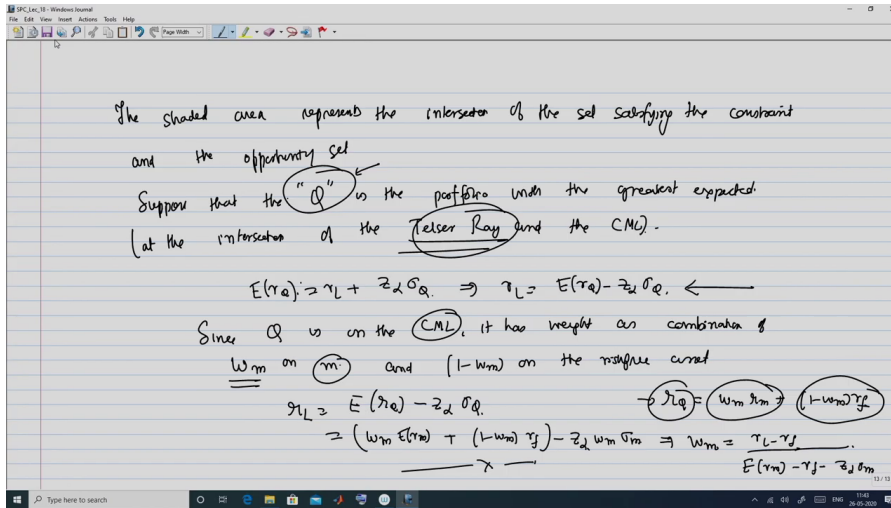 SPC_Lec_18 - Windows Journal
File Edit View Insert Actions Tools Help
Page Width
The shaded area represents the intersection of the set satisfying the constraint
and the opportunity set
Suppose that the "Q" is the portfolio with the greatest expected.
(at the intersection of the Telser Ray and the CML).
E(r_Q) = r_L + z_α σ_Q. ⇒ r_L = E(r_Q) - z_α σ_Q. ←
Since Q is on the CML, it has weight as combination of
w_m on m. and (1-w_m) on the riskfree asset
r_L = E(r_Q) - z_α σ_Q. → r_Q = w_m r_m + (1-w_m) r_f
= (w_m E(r_m) + (1-w_m) r_f) - z_α w_m σ_m ⇒ w_m = r_L - r_f / E(r_m) - r_f - z_α σ_m
13 / 13
Type here to search
ENG
11:43
26-05-2020